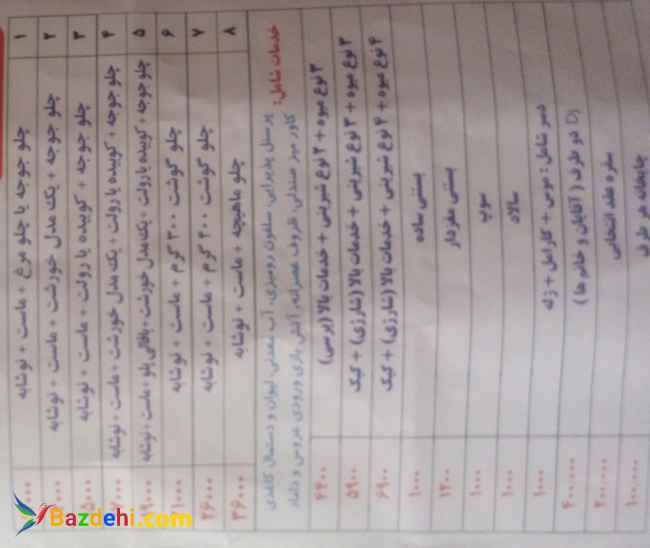 ۱ چلو جوجه یا چلو مرغ + ماست + نوشابه
۲ چلو جوجه + یک مدل خورشت + ماست + نوشابه
۳ چلو جوجه + کوبیده یا رولت + ماست + نوشابه
۴ چلو جوجه + کوبیده یا رولت + یک مدل خورشت + ماست + نوشابه
۵ چلو جوجه + کوبیده یا رولت + یک مدل خورشت + باقالی پلو + ماست + نوشابه
۶ چلو گوشت ۳۰۰ گرم + ماست + نوشابه
۷ چلو گوشت ۴۰۰ گرم + ماست + نوشابه ۲۶۰۰۰
۸ چلو ماهیچه + ماست + نوشابه ۳۶۰۰۰
خدمات شامل: پرسنل پذیرایی، سلفون رومیزی، آب معدنی، لیوان و دستمال کاغذی
کاور میز صندلی، ظروف عصرانه، آتش بازی ورودی عروس و داماد
۲ نوع میوه + ۲ نوع شیرینی + خدمات بالا (پرسی) ۴۴۰۰
۳ نوع میوه + ۳ نوع شیرینی + خدمات بالا (شارژی) + کیک ۵۹۰۰
۴ نوع میوه + ۴ نوع شیرینی + خدمات بالا (شارژی) + کیک ۶۹۰۰
بستنی ساده ۱۰۰۰
بستنی مغزدار ۱۲۰۰
سوپ ۱۰۰۰
سالاد ۱۰۰۰
دسر شامل: موس + کارامل + ژله ۱۰۰۰
Dj دو طرف (آقایان و خانم ها) ۴۰۰,۰۰۰
سفره عقد انتخابی ۲۰۰,۰۰۰
چایخانه هر طرف ۱۰۰,۰۰۰
Bazdehi.com